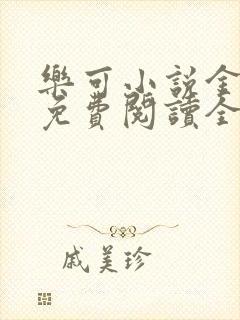 樂可小說全
免費閱讀全
戚美珍